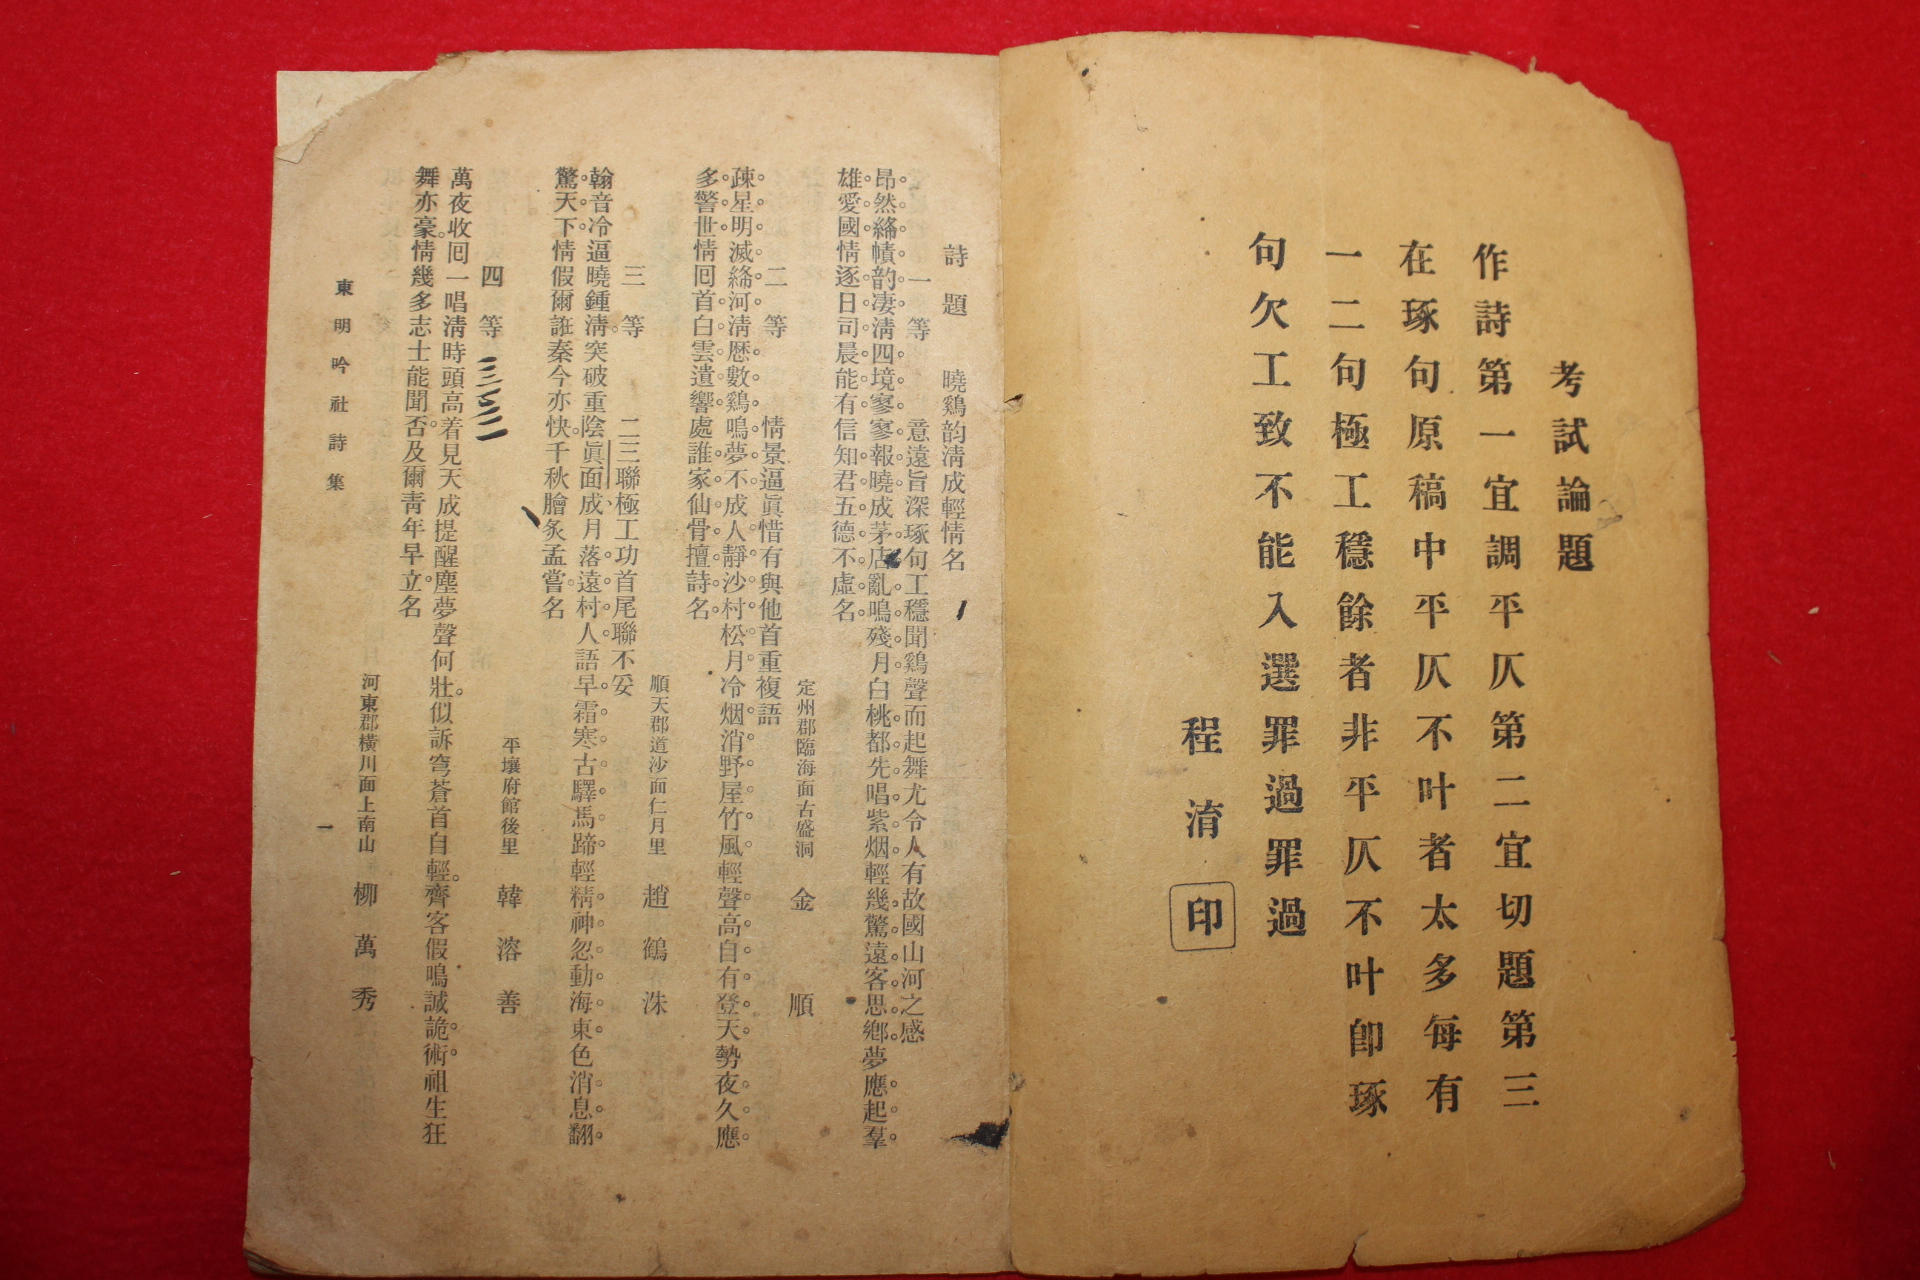 考試論題
作詩第一宜調平仄第二宜切題第三
在琢句原稿中平仄不叶者太多每有
一二句極工穩餘者非平仄不叶卽琢
句欠工致不能入選罪過罪過
程淯 印
詩題 曉鷄韵淸成輕情名
一等 意遠旨深琢句工穩聞鷄聲而起舞尤令人有故國山河之感
昂然絳幘韵凄淸四境寥寥報曉成茅店亂鳴殘月白桃都先唱紫烟輕幾驚遠客思鄕夢應起羣
雄愛國情逐日司晨能有信知君五德不虛名
定州郡臨海面古盛洞 金順
二等 情景逼眞惜有與他首重複語
疎星明滅絳河淸歷數鷄鳴夢不成人靜沙村松月冷烟消野屋竹風輕聲高自有登天勢夜久應
多警世情回首白雲遺響處誰家仙骨擅詩名
順天郡道沙面仁月里 趙鶴洙
三等 二三聯極工功首尾聯不妥
翰音冷逼曉鍾淸突破重陰眞面成月落遠村人語早霜寒古驛馬蹄輕精神忽動海東色消息翻
驚天下情假爾誑秦今亦快千秋膾炙孟嘗名
平壤府館後里 韓溶善
四等
萬夜收回一唱淸時頭高着見天成提醒塵夢聲何壯似訴穹蒼首自輕齊客假鳴誠詭術祖生狂
舞亦豪情幾多志士能聞否及爾靑年早立名
河東郡橫川面上南山 柳萬秀
東明吟社詩集 一